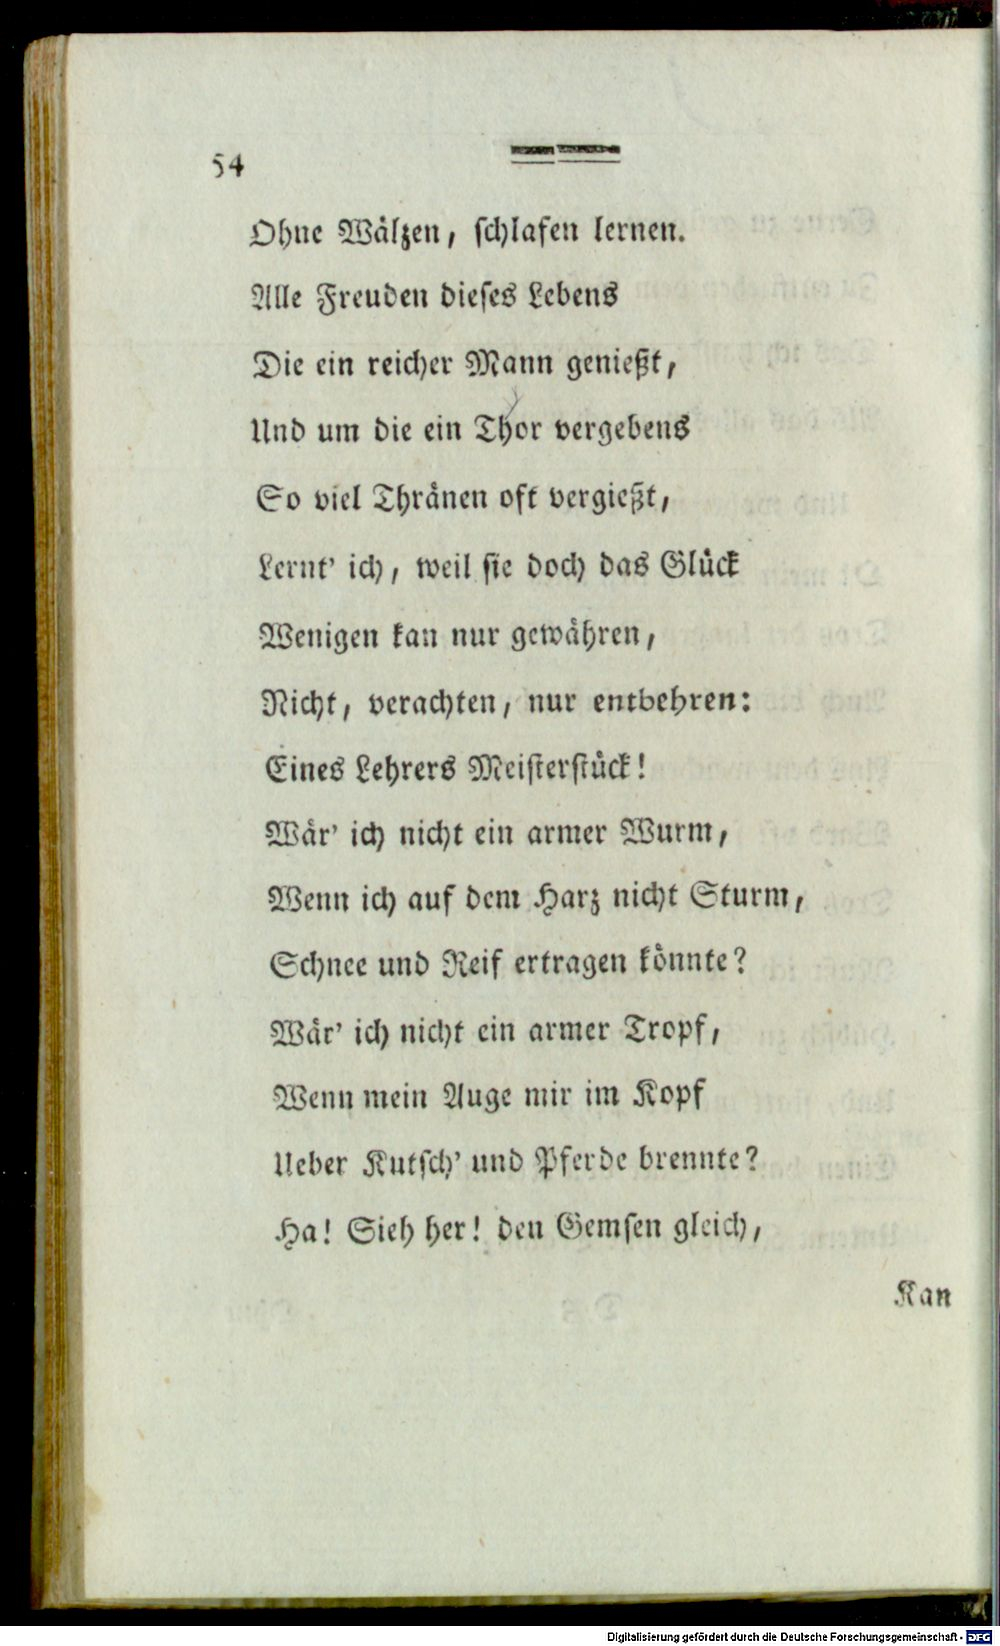 54
Ohne Wälzen, ſchlafen lernen.
Alle Freuden dieſes Lebens
Die ein reicher Mann genießt,
Und um die ein Thor vergebens
So viel Thränen oft vergießt,
Lernt' ich, weil ſie doch das Glück
Wenigen kan nur gewähren,
Nicht, verachten, nur entbehren:
Eines Lehrers Meiſterſtück!
Wär' ich nicht ein armer Wurm,
Wenn ich auf dem Harz nicht Sturm,
Schnee und Reif ertragen könnte?
Wär' ich nicht ein armer Tropf,
Wenn mein Auge mir im Kopf
Ueber Kutſch' und Pferde brennte?
Ha! Sieh her! den Gemſen gleich,
Kan
Digitalisierung gefördert durch die Deutsche Forschungsgemeinschaft - DFG